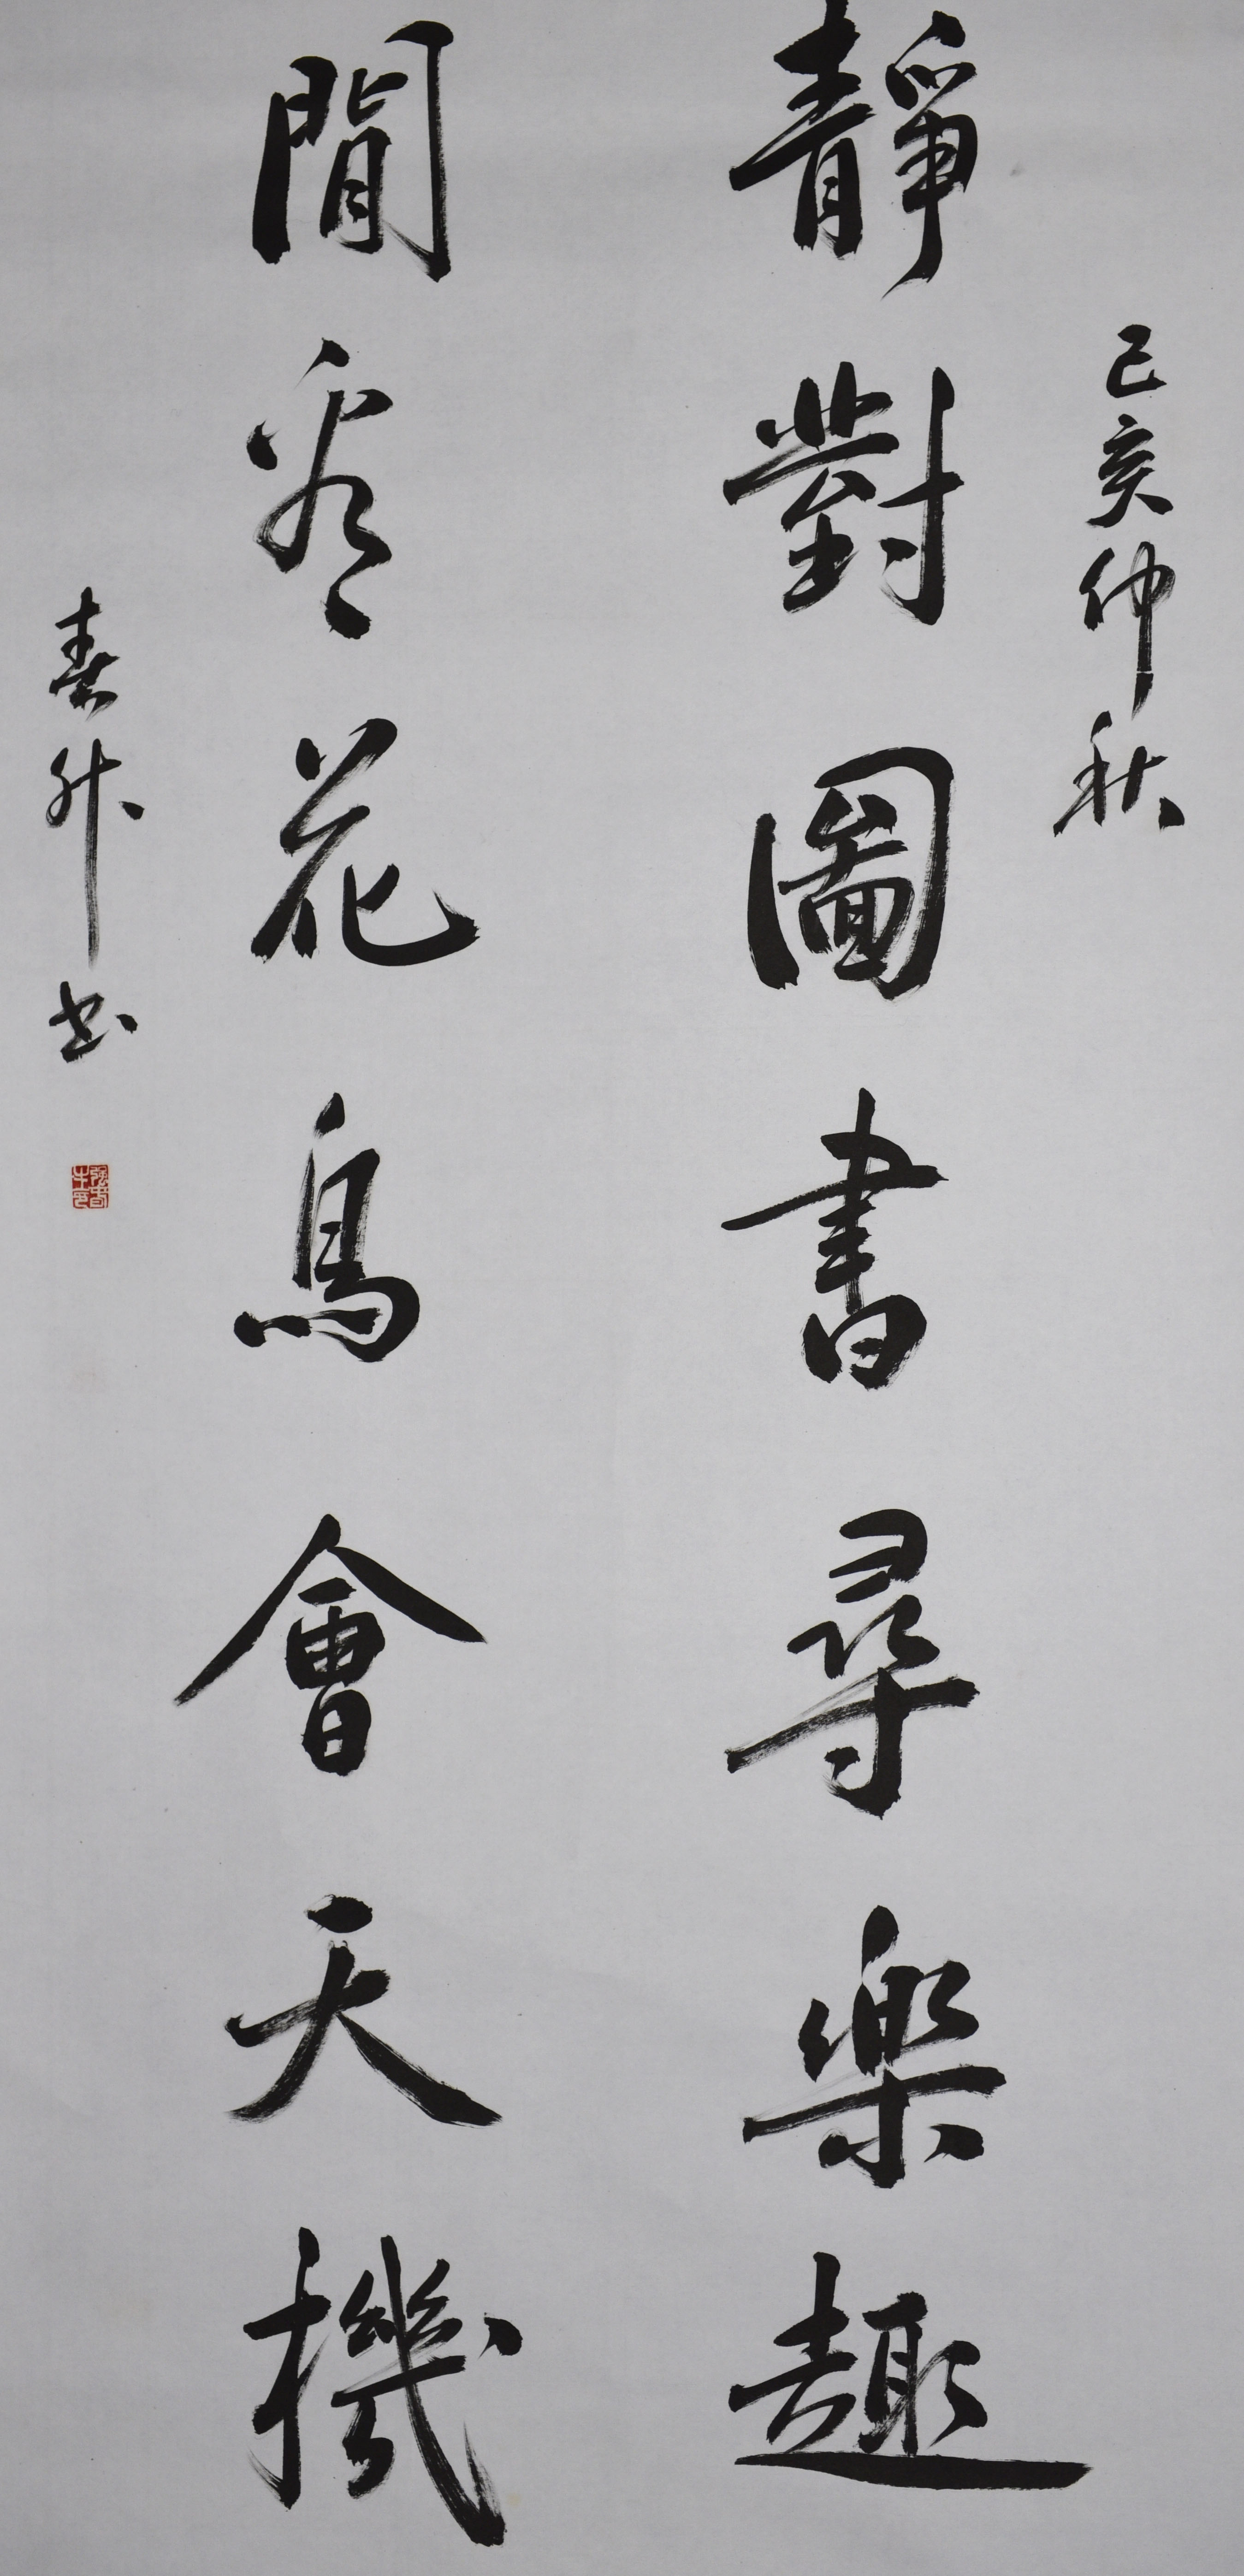 己亥仲秋
靜對圖書尋樂趣
閒觀花鳥會天機
春升書